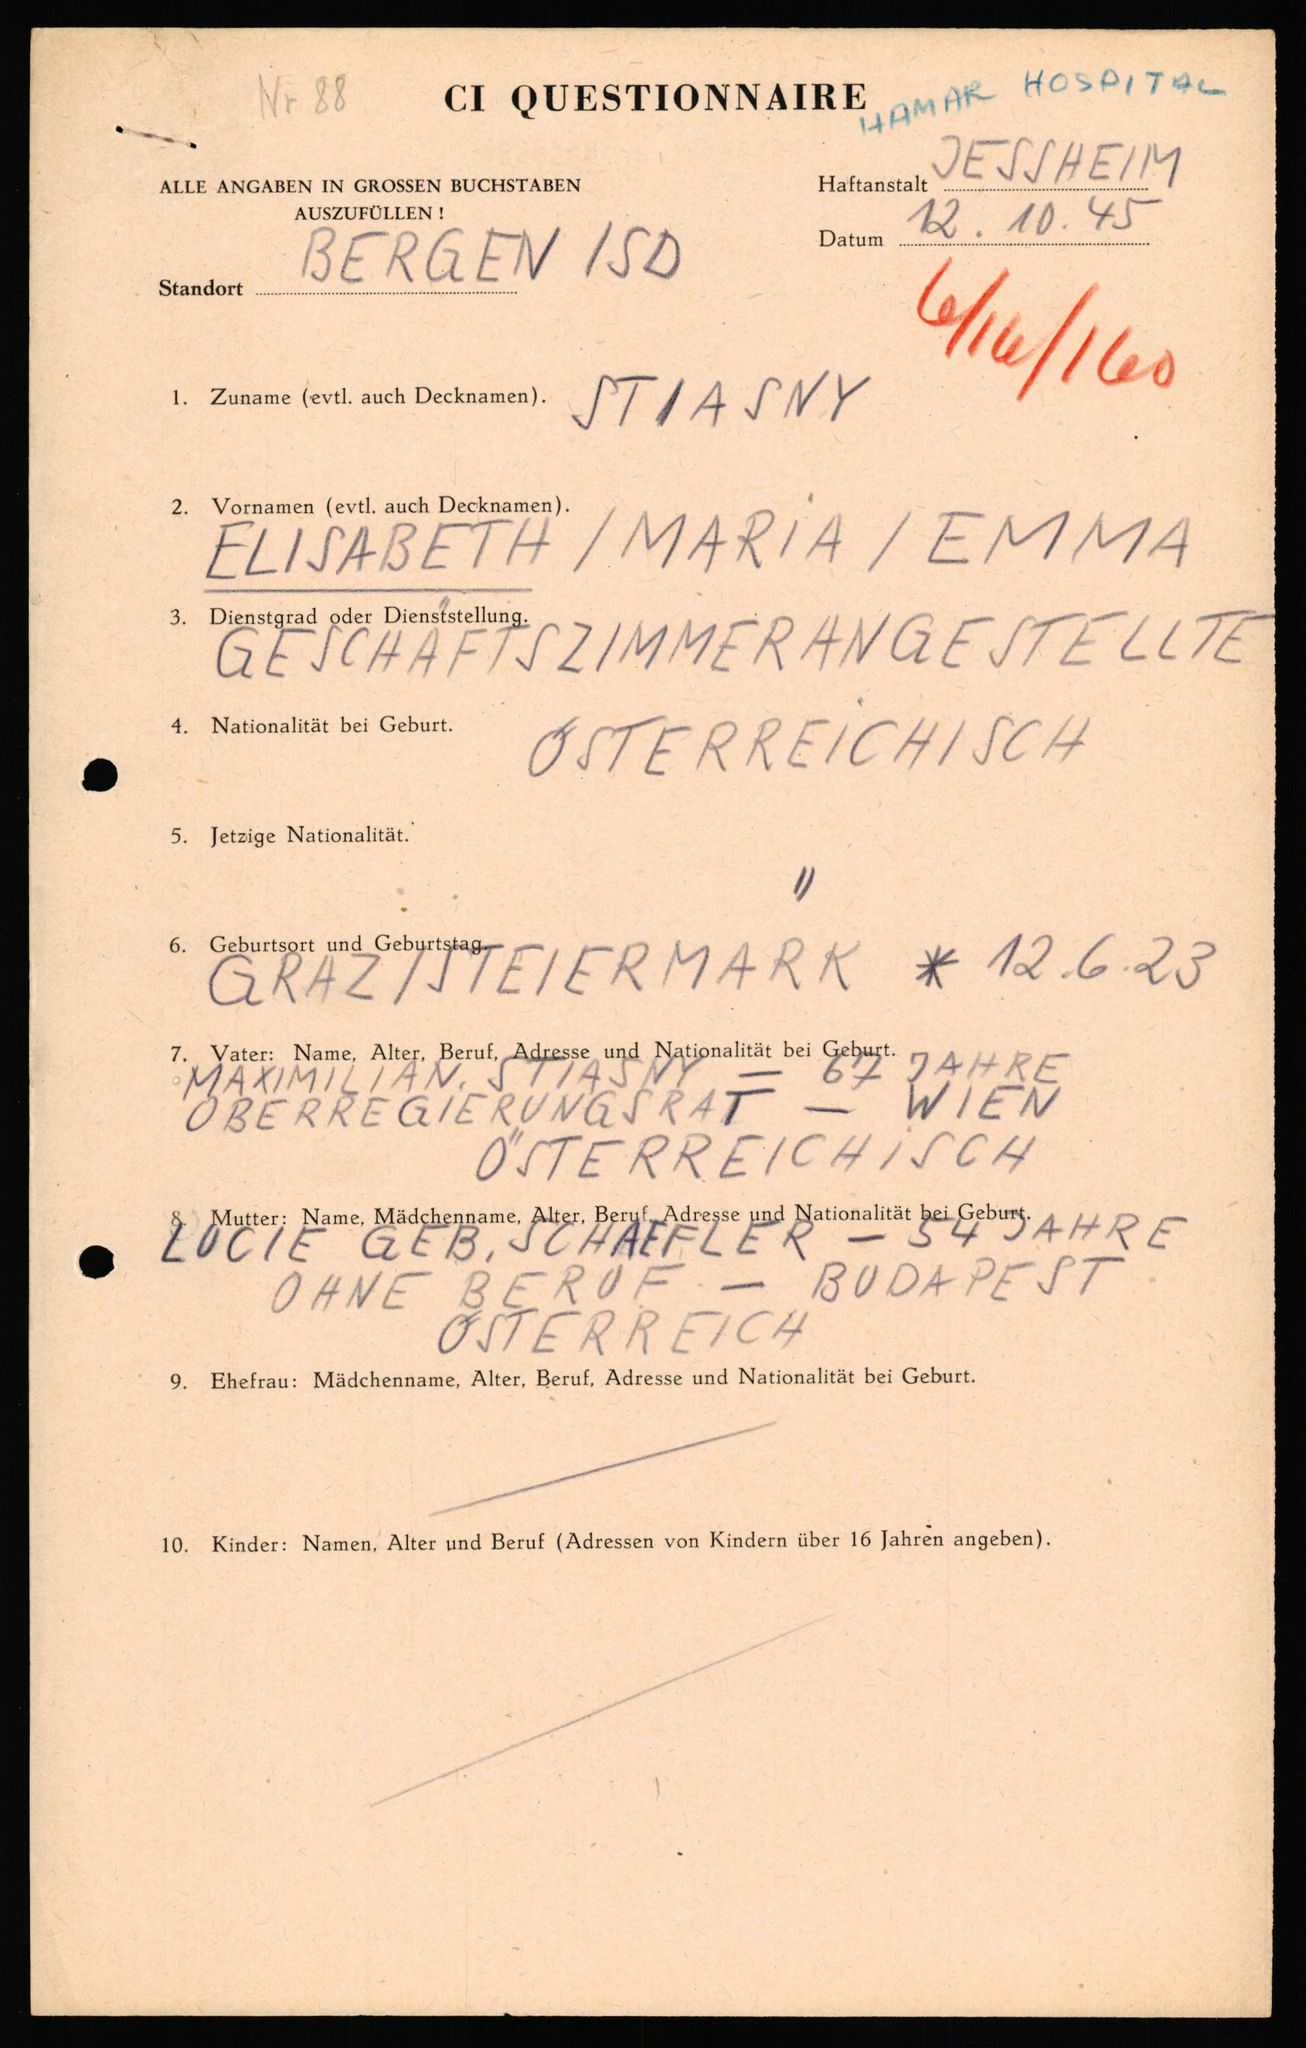 Nr 88
CI QUESTIONNAIRE
HAMAR HOSPITAL
ALLE ANGABEN IN GROSSEN BUCHSTABEN
AUSZUFÜLLEN !
Haftanstalt JESSHEIM
Datum 12.10.45
Standort BERGEN / SD
6/16/160
1. Zuname (evtl. auch Decknamen). STIASNY
2. Vornamen (evtl. auch Decknamen).
ELISABETH / MARIA / EMMA
3. Dienstgrad oder Dienststellung.
GESCHÄFTSZIMMERANGESTELLTE
4. Nationalität bei Geburt.
ÖSTERREICHISCH
5. Jetzige Nationalität.
"
6. Geburtsort und Geburtstag.
GRAZ / STEIERMARK * 12.6.23
7. Vater: Name, Alter, Beruf, Adresse und Nationalität bei Geburt.
MAXIMILIAN. STIASNY — 67 JAHRE
OBERREGIERUNGSRAT — WIEN
ÖSTERREICHISCH
8. Mutter: Name, Mädchenname, Alter, Beruf, Adresse und Nationalität bei Geburt.
LUCIE GEB. SCHAEFLER — 54 JAHRE
OHNE BERUF — BUDAPEST
ÖSTERREICH
9. Ehefrau: Mädchenname, Alter, Beruf, Adresse und Nationalität bei Geburt.
10. Kinder: Namen, Alter und Beruf (Adressen von Kindern über 16 Jahren angeben).